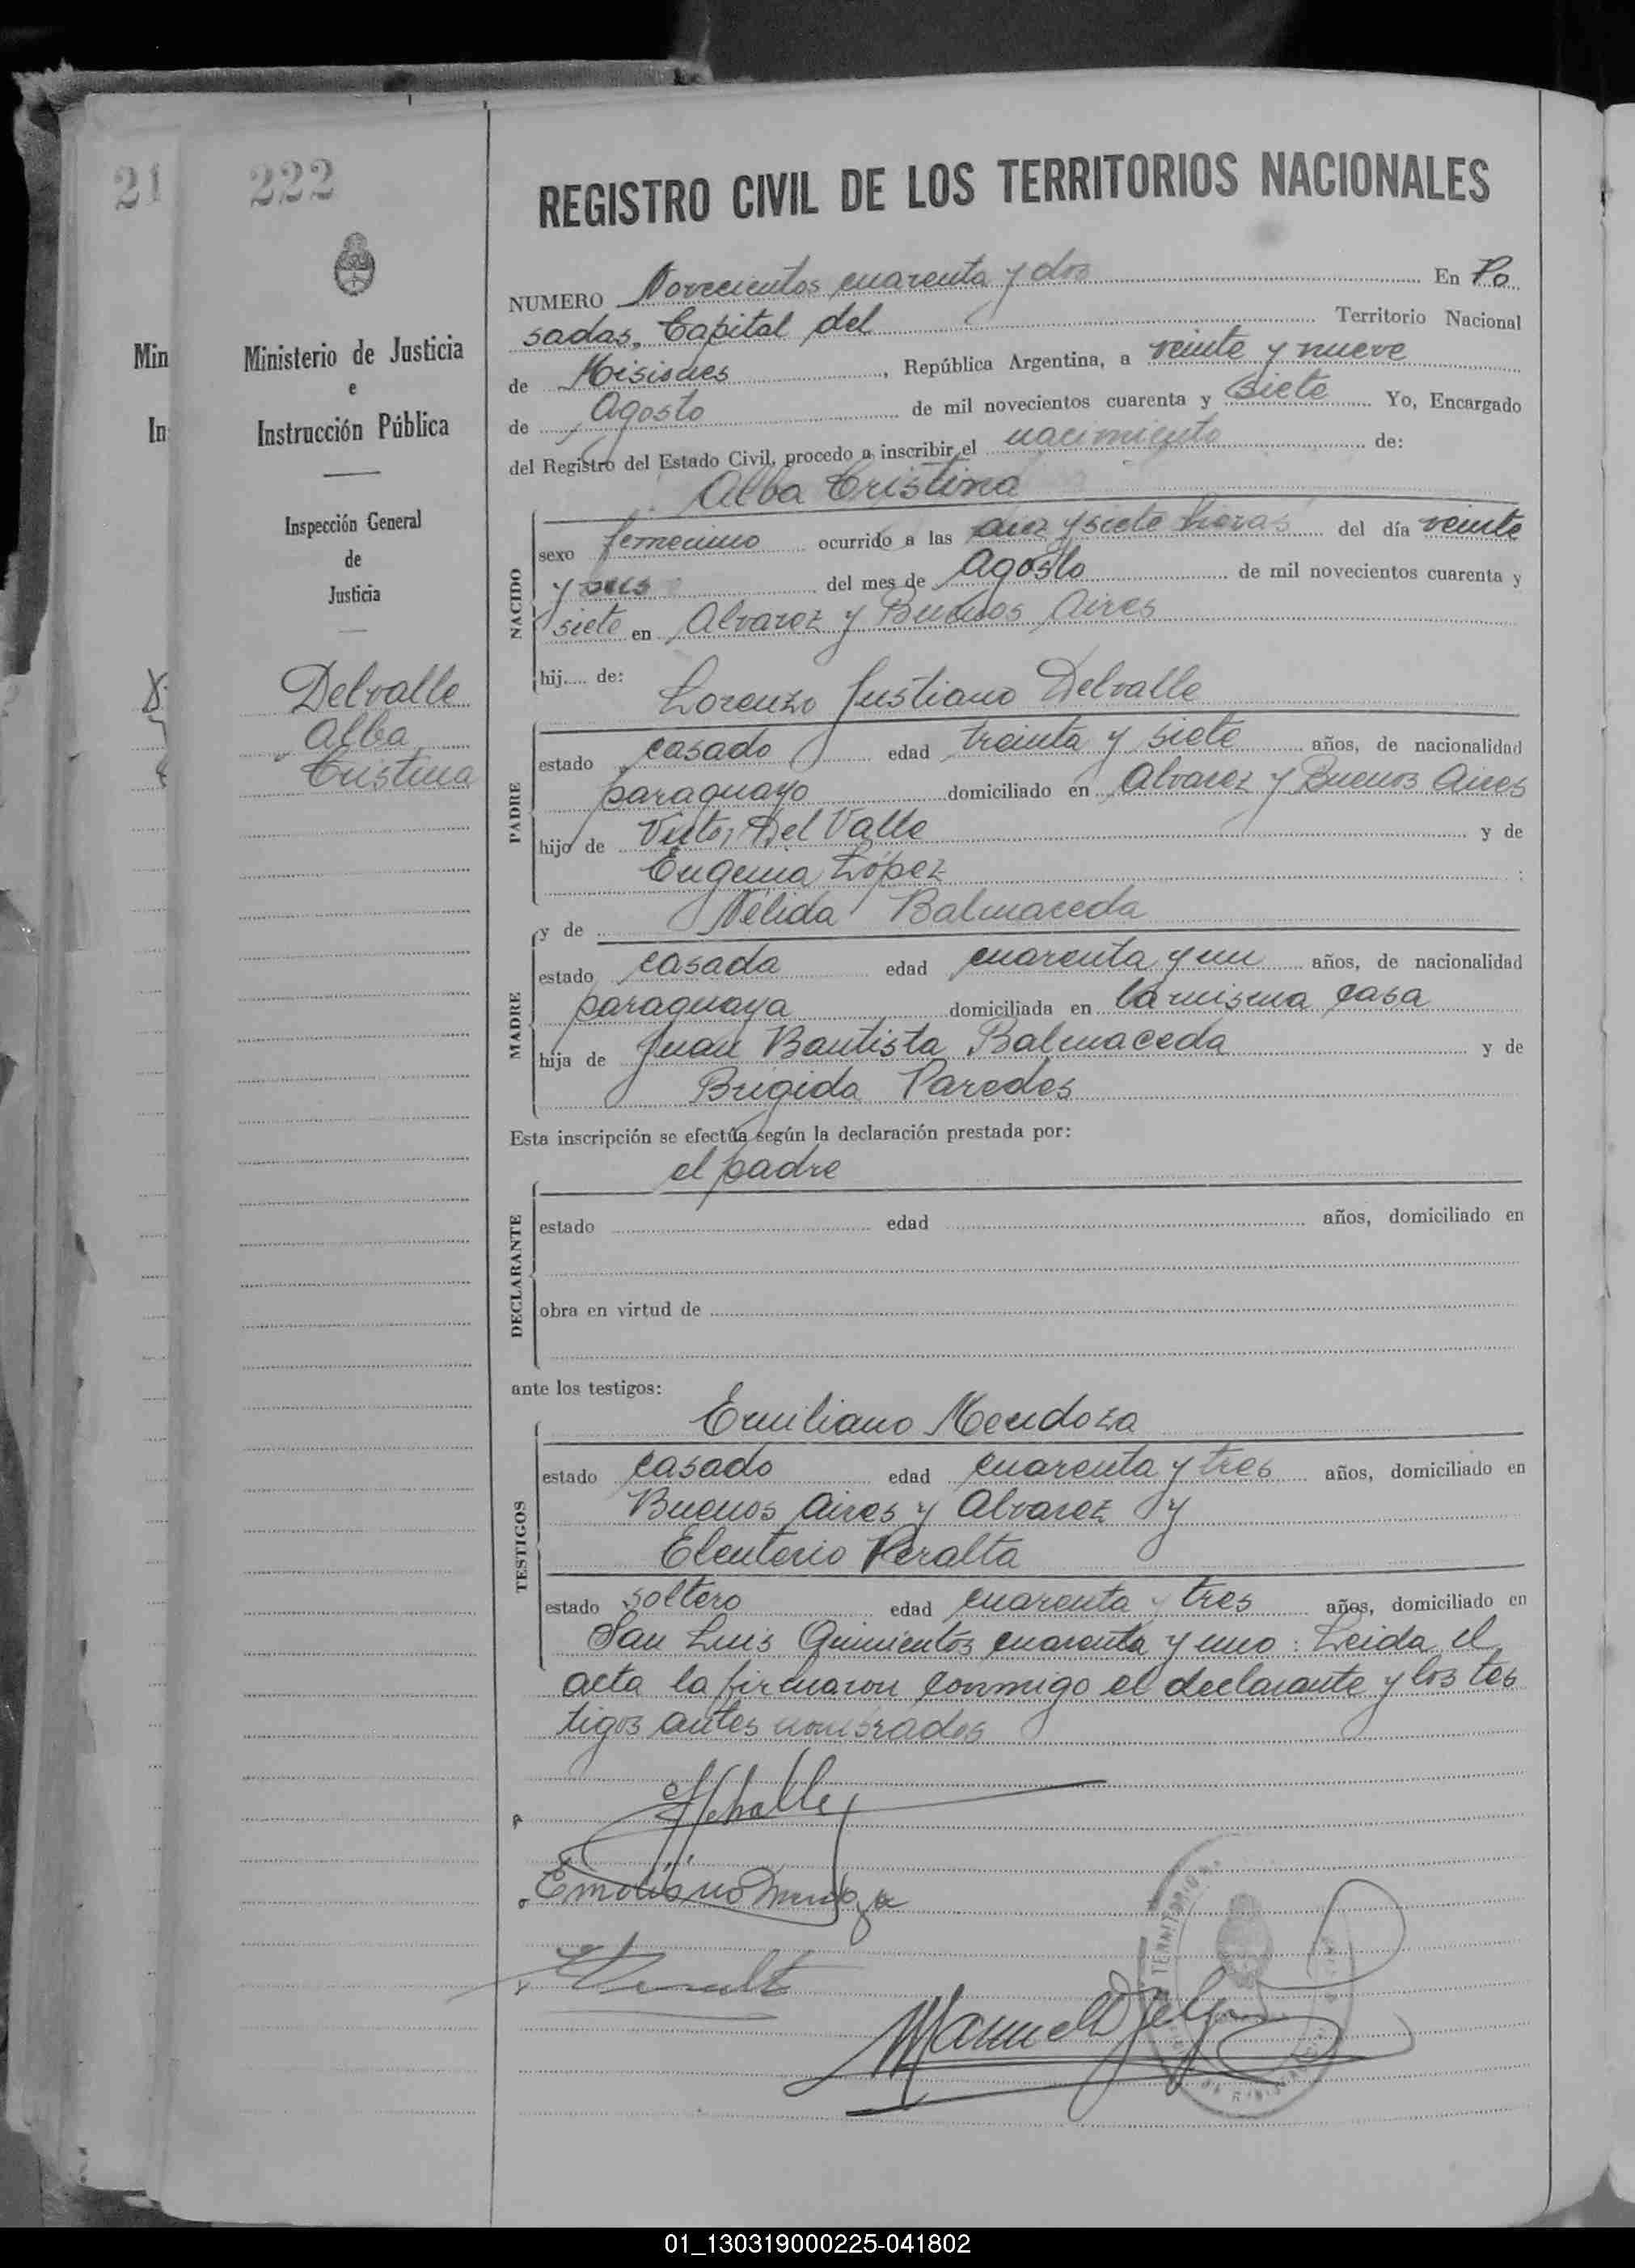 21
222
Min
In
Ministerio de Justicia
e
Instrucción Pública
Inspección General
de
Justicia
Delvalle
Alba
Cristina
REGISTRO CIVIL DE LOS TERRITORIOS NACIONALES
NUMERO Novecientos cuarenta y dos En Po
sadas, Capital del Territorio Nacional
de Misiones, República Argentina, a veinte y nueve
de Agosto de mil novecientos cuarenta y siete Yo, Encargado
del Registro del Estado Civil, procedo a inscribir el nacimiento de:
Alba Cristina
NACIDO
sexo femenino ocurrido a las diez y siete horas del día veinte
y del mes de Agosto de mil novecientos cuarenta y
siete en Alvarez y Buenos Aires
hij.... de:
Lorenzo Justiano Delvalle
PADRE
estado casado edad treinta y siete años, de nacionalidad
paraguayo domiciliado en Alvarez y Buenos Aires
hijo de Victor Del Valle y de
Eugenia López :
y de Nélida Balmaceda
MADRE
estado casada edad cuarenta y un años, de nacionalidad
paraguaya domiciliada en la misma casa
hija de Juan Bautista Balmaceda y de
Brigida Paredes
Esta inscripción se efectúa según la declaración prestada por:
el padre
DECLARANTE
estado edad años, domiciliado en
obra en virtud de
ante los testigos:
Emiliano Mendoza
TESTIGOS
estado casado edad cuarenta y tres años, domiciliado en
Buenos Aires y Alvarez y
Eleuterio Peralta
estado soltero edad cuarenta y tres años, domiciliado en
San Luis Quinientos cuarenta y uno: Leida el
acta la firmaron conmigo el declarante y los tes
tigos antes nombrados
Emiliano Mendoza
01_130319000225-041802